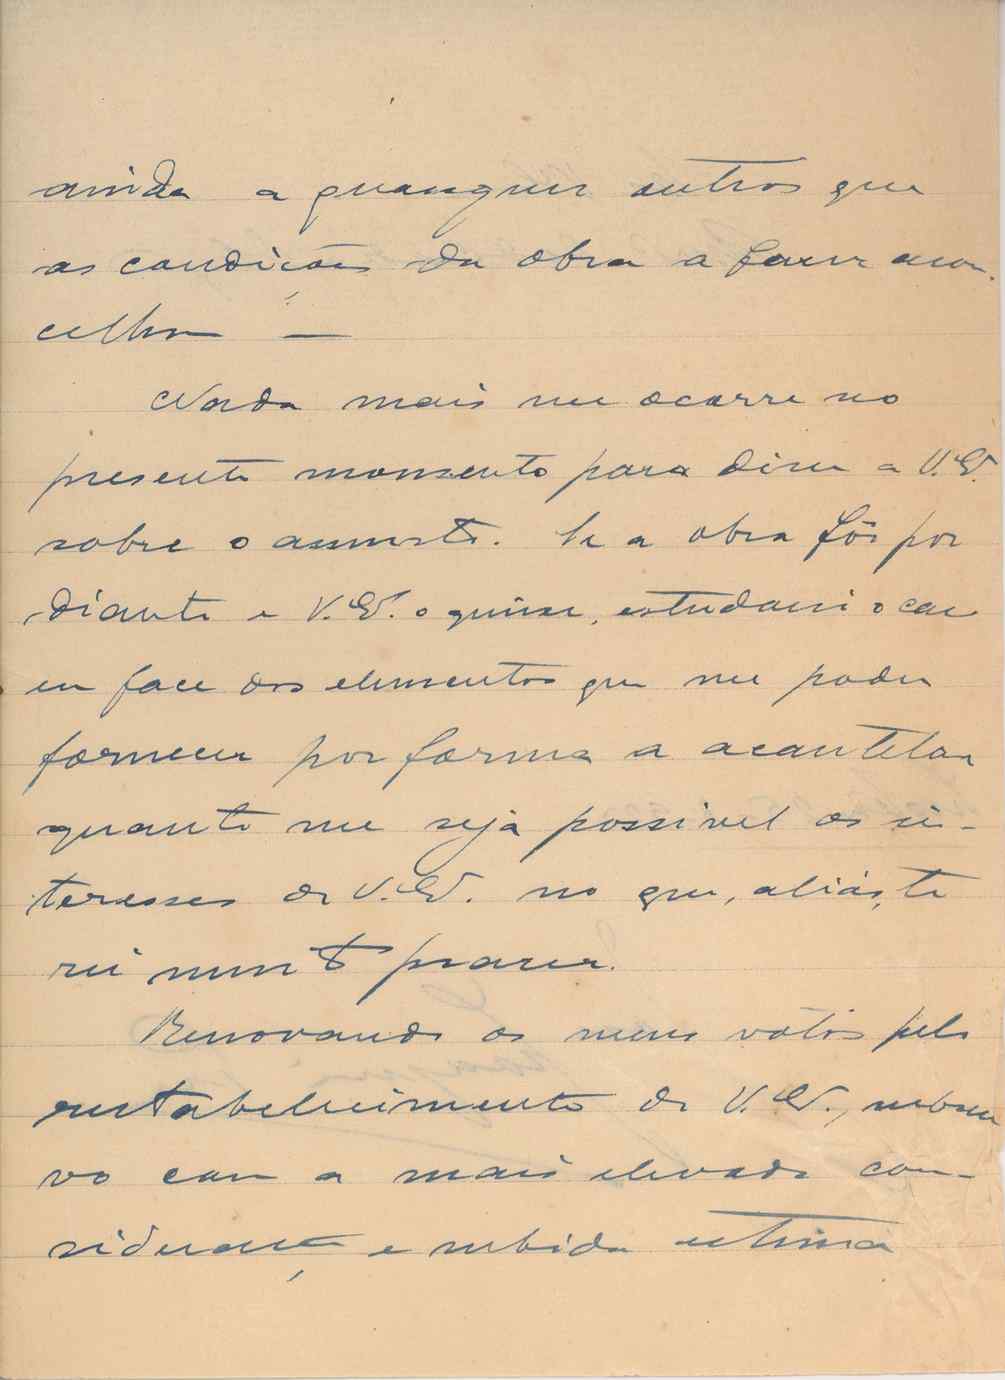 ainda a quaesquer outros que
as condições da obra a fazer acon-
celhem —
Nada mais me ocorre no
presente momento para dizer a V. Ex.
sobre o assunto. Se a obra fôr por
diante e V. Ex. o quizer, estudarei o caso
em face dos elementos que me poder
fornecer por forma a acautelar
quanto me seja possivel os in-
teresses de V. Ex. no que, aliás, te
rei muito prazer.
Renovando os meus vótos pelo
restabelecimento de V. Ex.,
vo com a mais elevada con-
sideração e subida estima